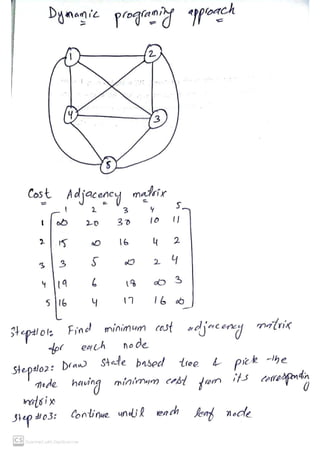 Dynamic programing approach
1
2
4
3
5
Cost Adjacency matrix
1 2 3 4 5
1 ∞ 20 30 10 11
2 15 ∞ 16 4 2
3 3 5 ∞ 2 4
4 19 6 18 ∞ 3
5 16 4 17 16 ∞
Step#01: Find minimum cost adjacency matrix
for each node
Step#02: Draw state based tree & pick the
node having minimum cost from its corresponding
matrix
Step#03: Continue until reach leaf node
CS Scanned with CamScanner